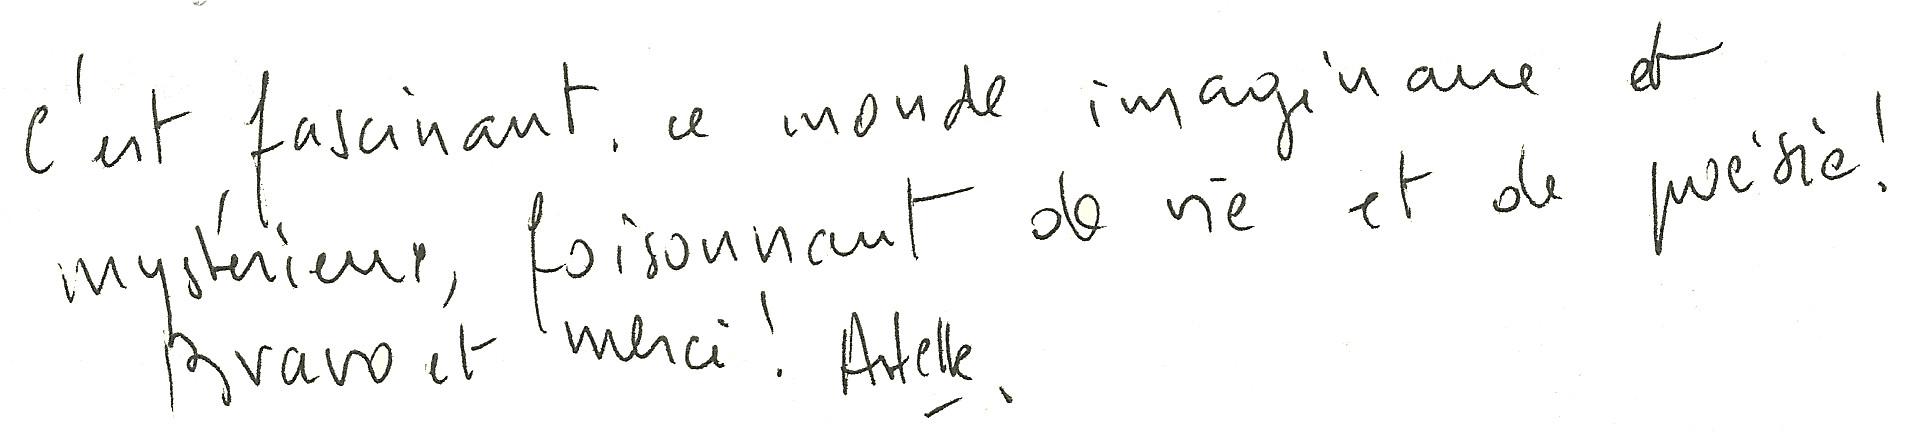 C'est fascinant, ce monde imaginaire et
mystérieux, foisonnant de vie et de poésie!
Bravo et merci! Artelle.